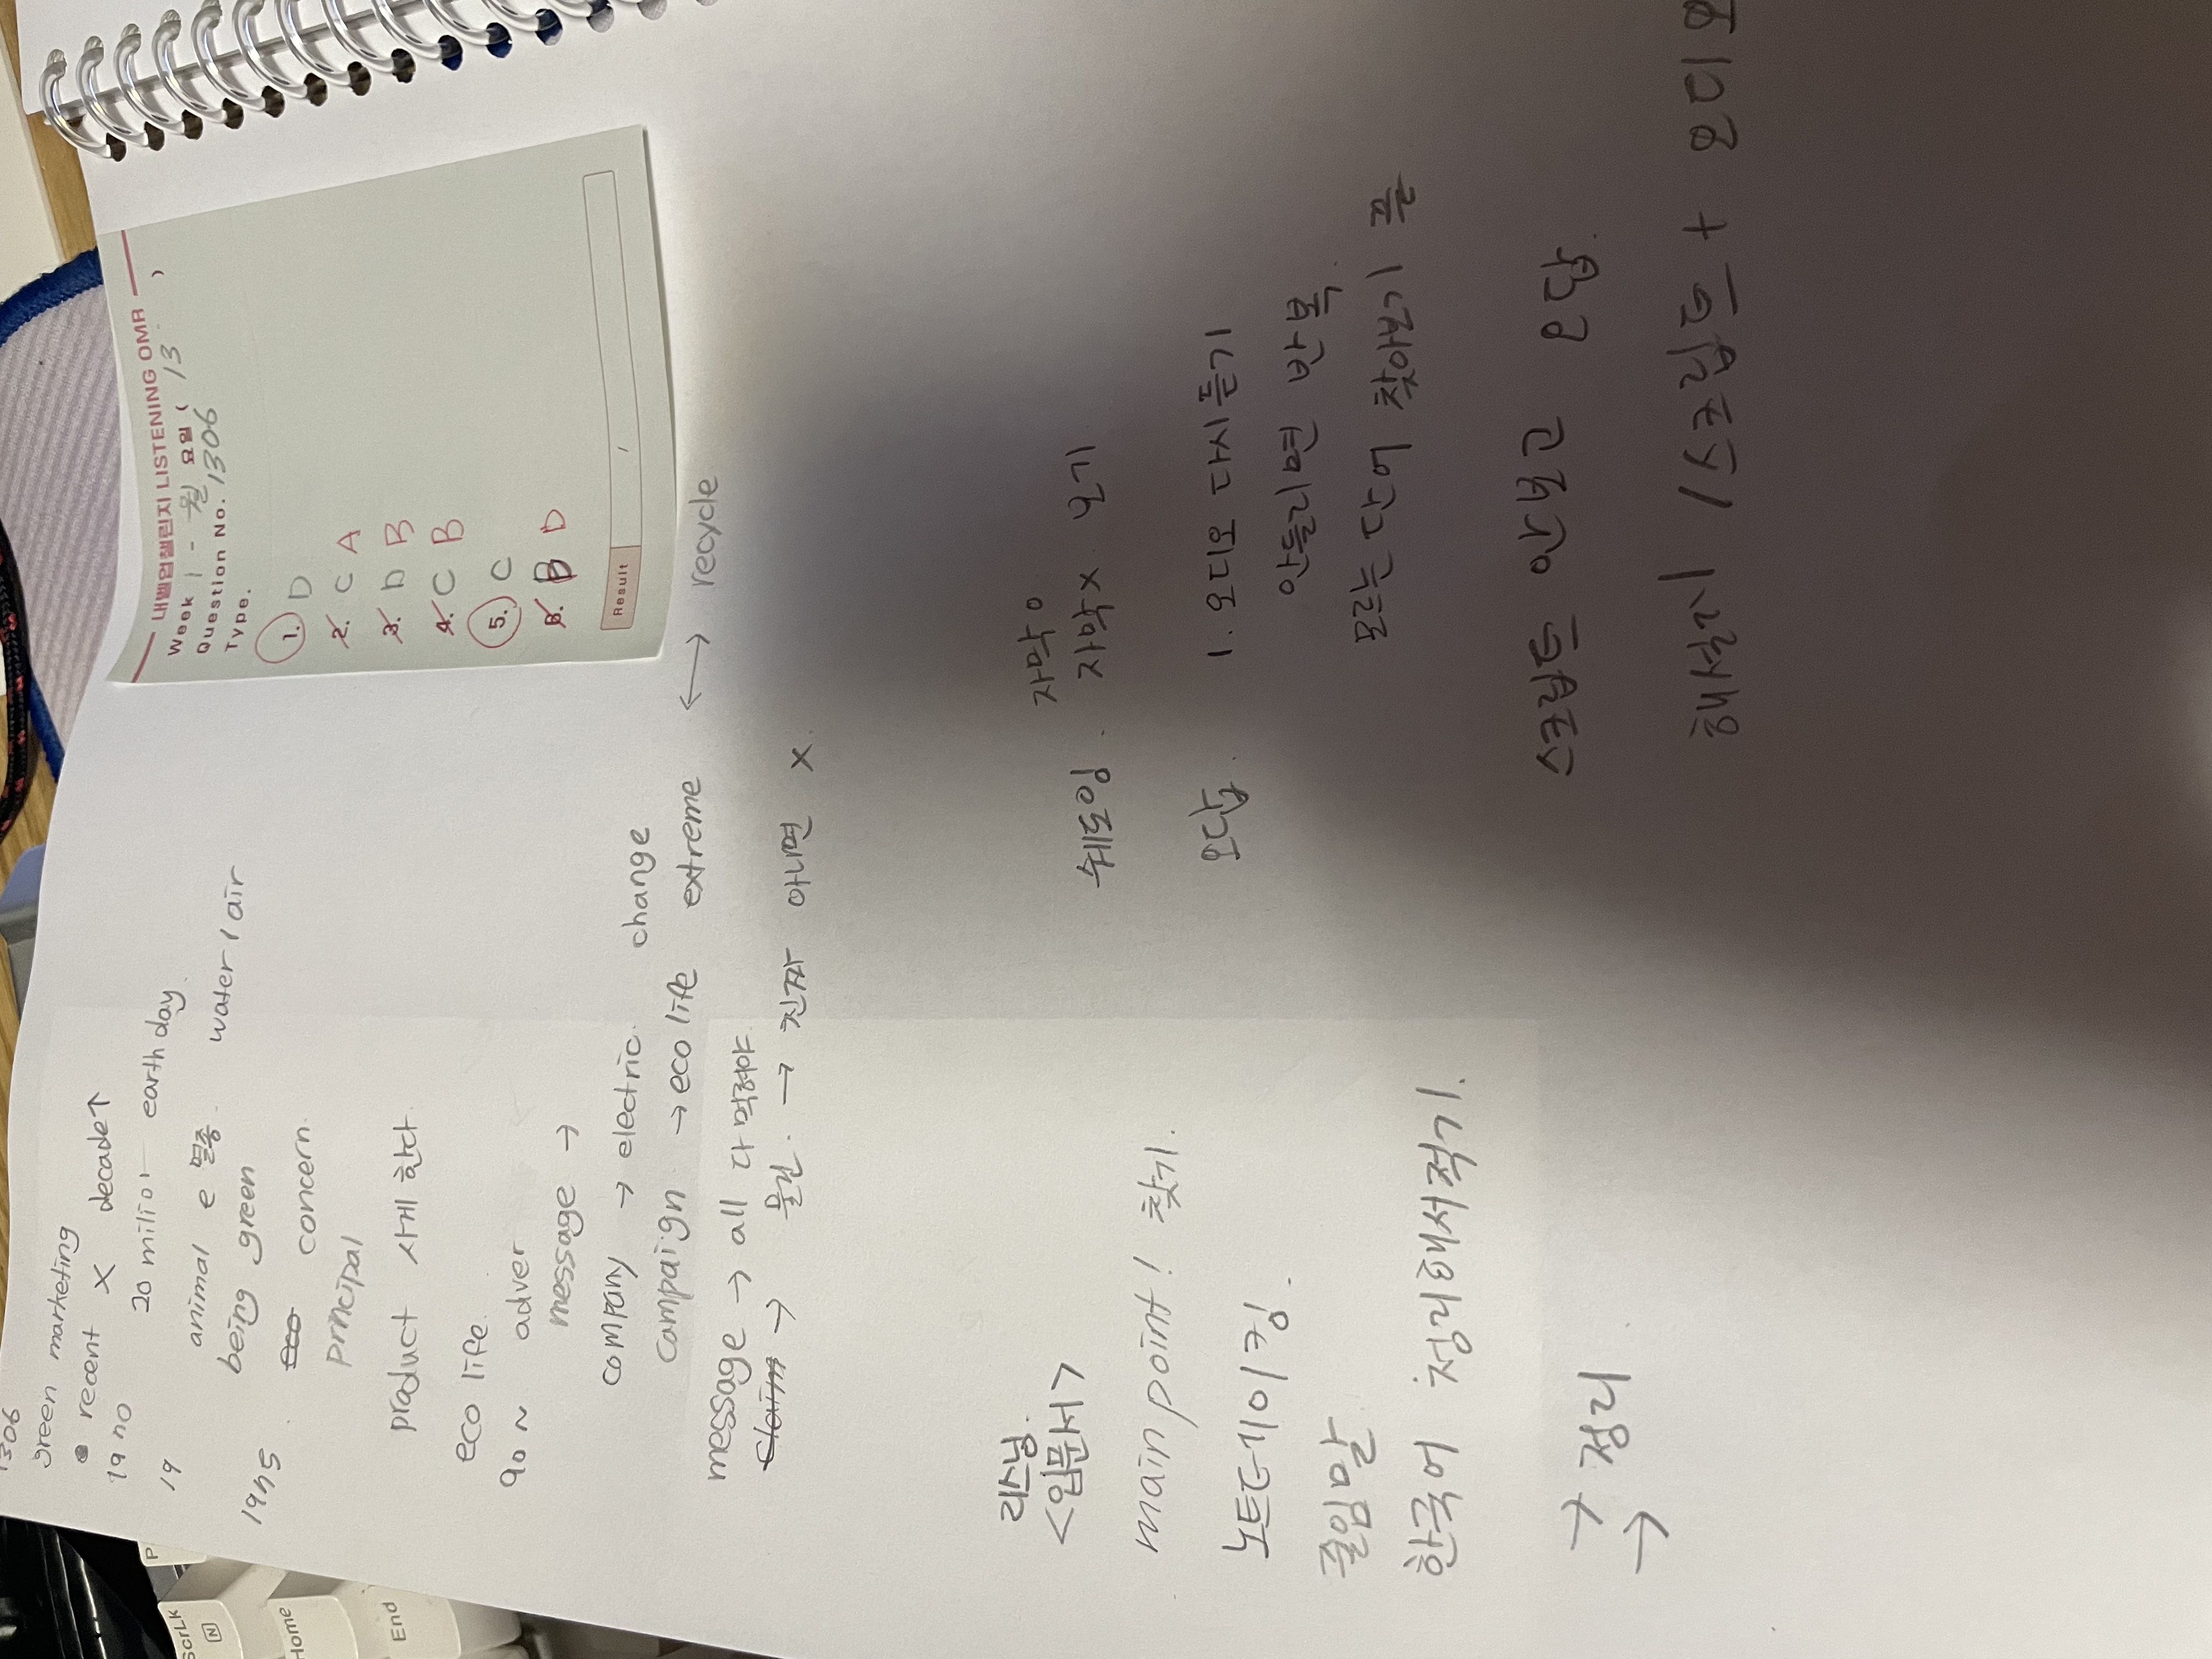 1306
green marketing
recent X decade↑
1970
20 milion earth day
19
animal e 멸종
being green water/air
1975
eco concern
principal
product 사게 한다
eco life.
90 ~ adver
message →
company → electric. change
campaign → eco life extreme ←→ recycle
message → all 다 먹혀야.
claim → 물건. → 진짜 아니면 x.
내벨업챌린지 LISTENING OMR
Week 1 - 월 요일 ( 13 )
Question No. 1306
Type.
1. D
2. C A
3. D B
4. C B
5. C
6. B D
Result /
리스닝
<입문서>
main point! 찾기.
노트테이킹.
줄임말
한국어 정리해서적기.
→ 정리
→
자막o
쉐도잉. 자막x 보기
오답. 1: 오디오 다시듣기
모르는 단어 찾아보기